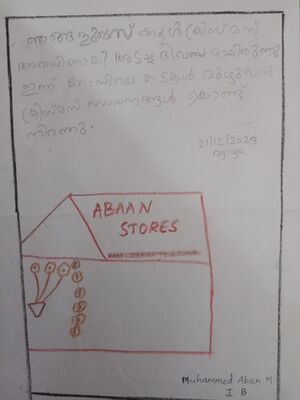 ഞങ്ങളുടെ സ്കൂൾ ക്രിസ്മസ്
അവധിക്കായി അടച്ച ദിവസമായിരുന്നു
ഇന്ന് റോഡിലെ കടകൾ മുഴുവൻ
ക്രിസ്മസ് സാധനങ്ങൾ കൊണ്ട്
നിറഞ്ഞു.
21/12/2023
വ്യാഴം
ABAAN
STORES
Muhammed Aban M
I B